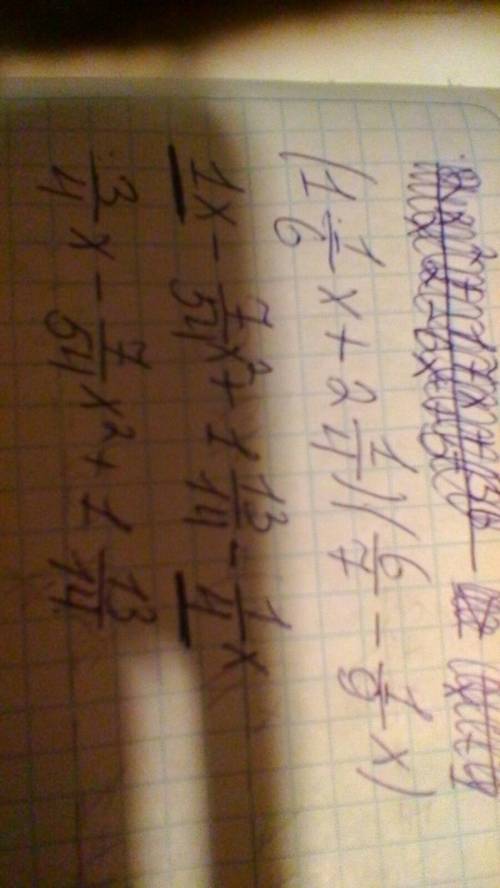 (1 1/6 x + 2 1/4)(6/7 - 1/9 x)
1x - 7/54 x² + 1 13/14 - 1/4 x
3/4 x - 7/54 x² + 1 13/14